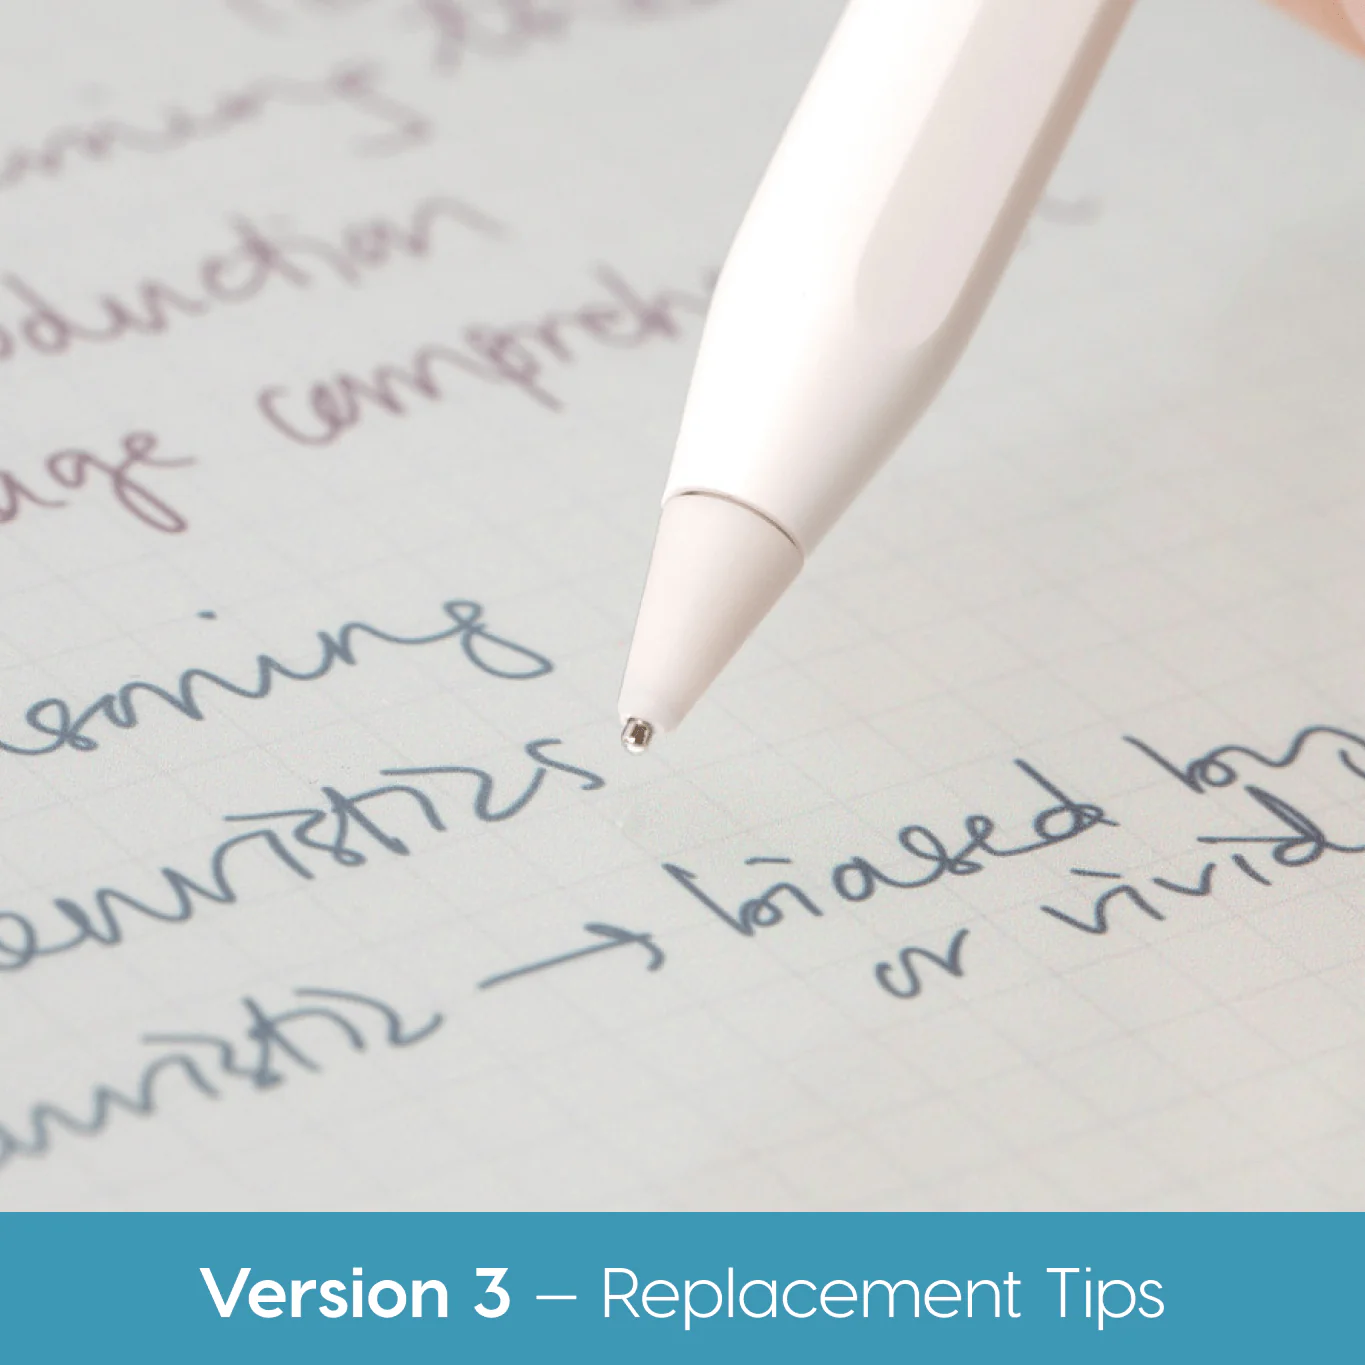 duction
age compreh
soning
euristics
euristic → biased by
or vivid
Version 3 – Replacement Tips